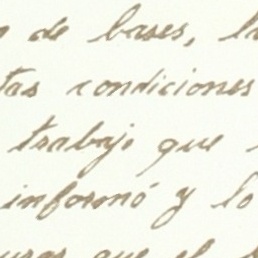 de bases,
condiciones
trabajo que
informó y lo
que el